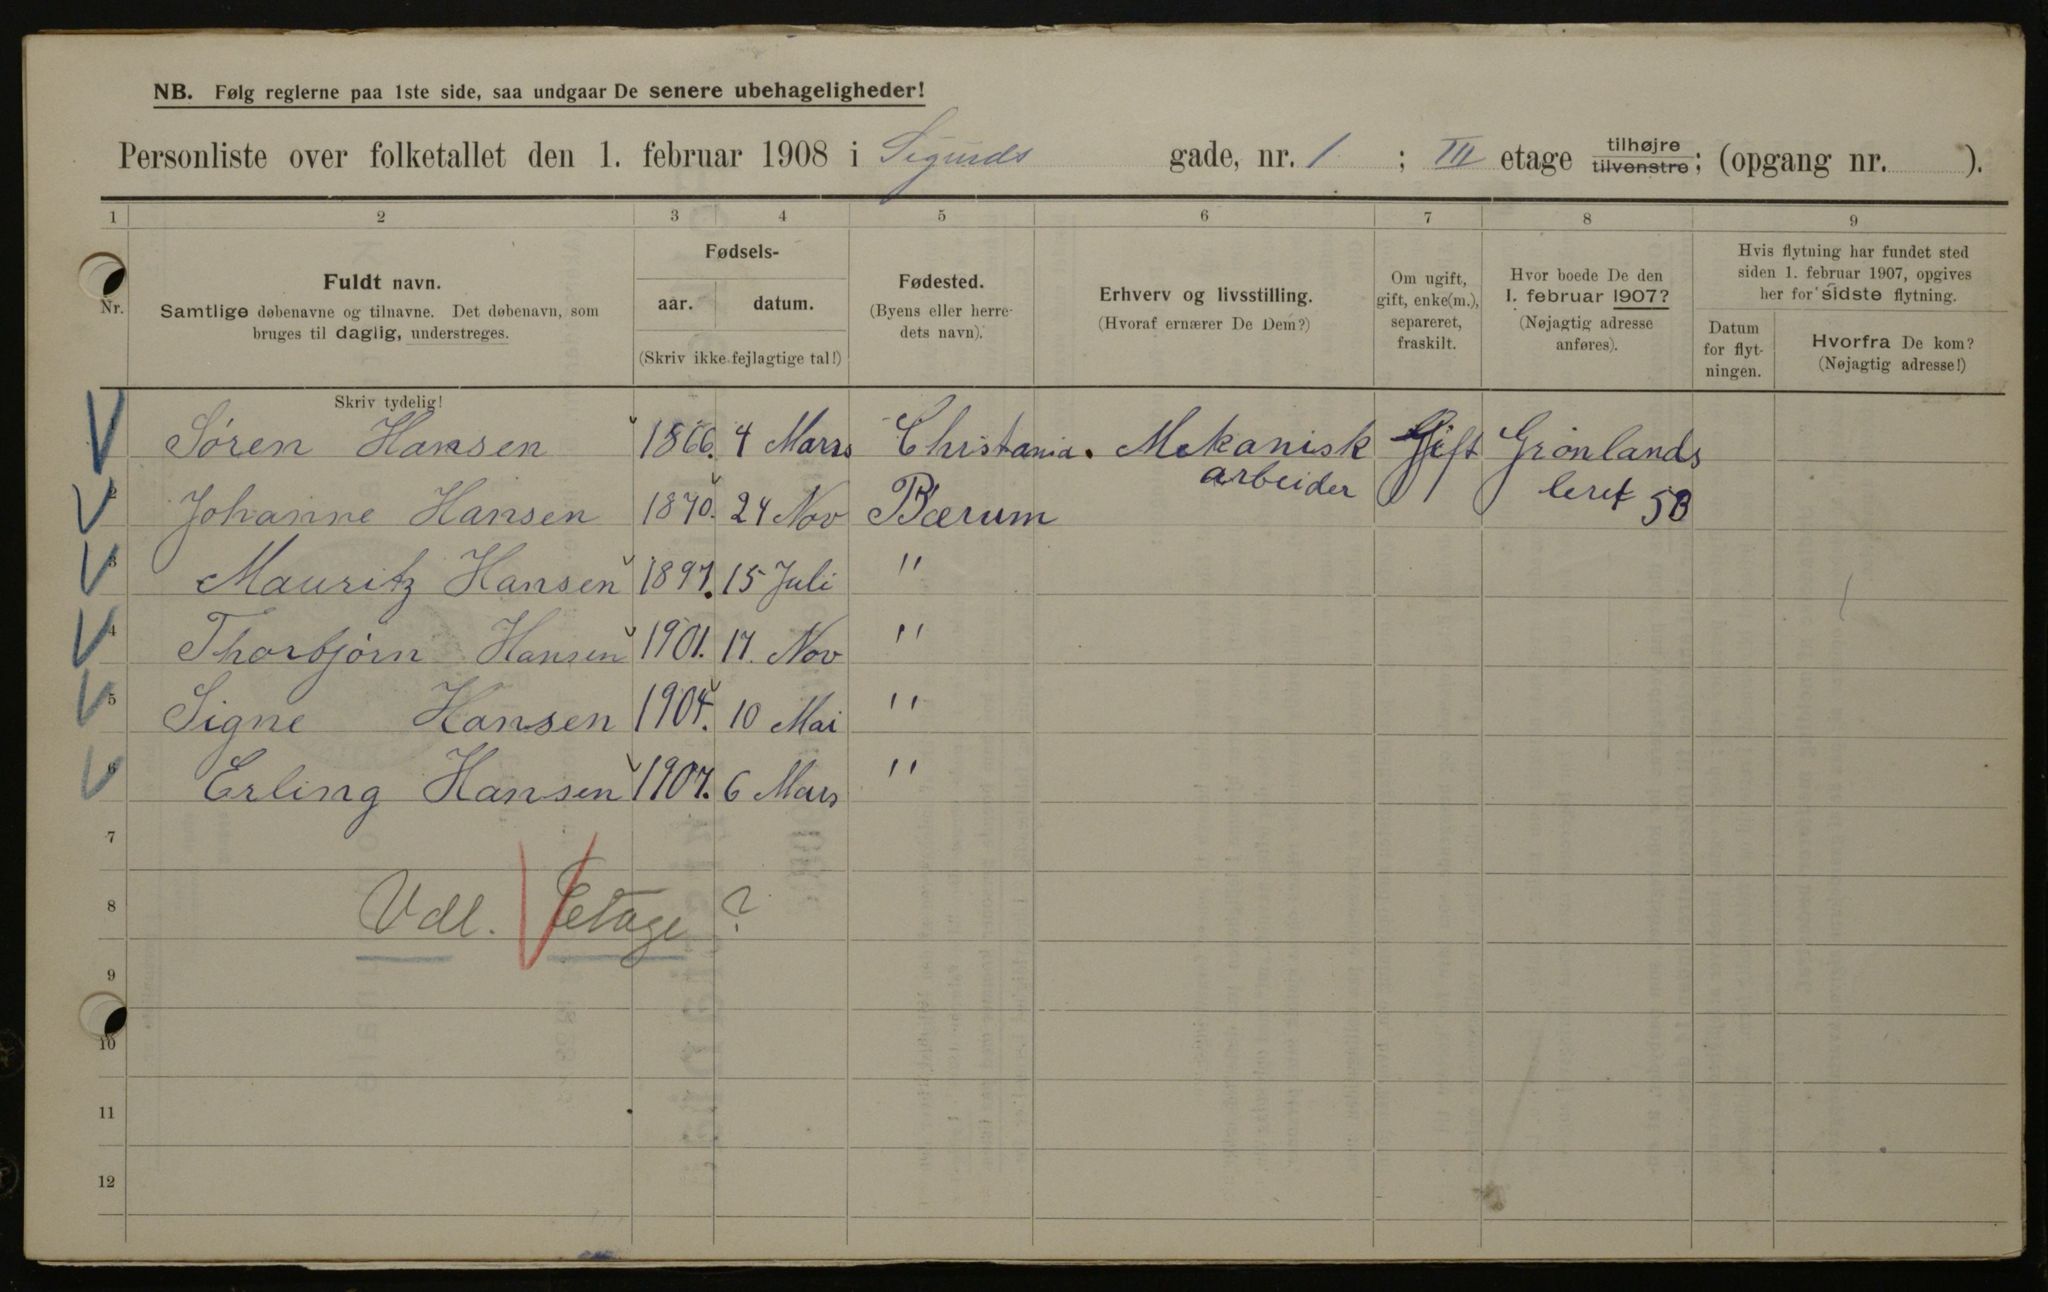 NB. Følg reglerne paa 1ste side, saa undgaar De senere ubehageligheder!
Personliste over folketallet den 1. februar 1908 i Sigurds gade, nr. 1 ; III etage tilhøjre tilvenstre; (opgang nr. ).
1 2 3 4 5 6 7 8 9
Nr.
Fuldt navn.
Samtlige døbenavne og tilnavne. Det døbenavn, som
bruges til daglig, understreges.
Skriv tydelig!
Fødsels-
aar. datum.
(Skriv ikke fejlagtige tal!)
Fødested.
(Byens eller herre-
dets navn).
Erhverv og livsstilling.
(Hvoraf ernærer De Dem?)
Om ugift,
gift, enke(m.),
separeret,
fraskilt.
Hvor boede De den
1. februar 1907?
(Nøjagtig adresse
anføres).
Hvis flytning har fundet sted
siden 1. februar 1907, opgives
her for sidste flytning.
Datum
for flyt-
ningen.
Hvorfra De kom?
(Nøjagtig adresse!)
Søren Hansen 1866. 4 Mars Christania. Mekanisk Gift Grønlands
arbeider leret 5B
2 Johanne Hansen 1870. 24 Nov Bærum
3 Mauritz Hansen 1897. 15 Juli "
4 Thorbjørn Hansen 1901. 17. Nov "
5 Signe Hansen 1904. 10 Mai "
6 Erling Hansen 1907. 6 Mars "
7
8 Vdl. Etage ?
9
10
11
12